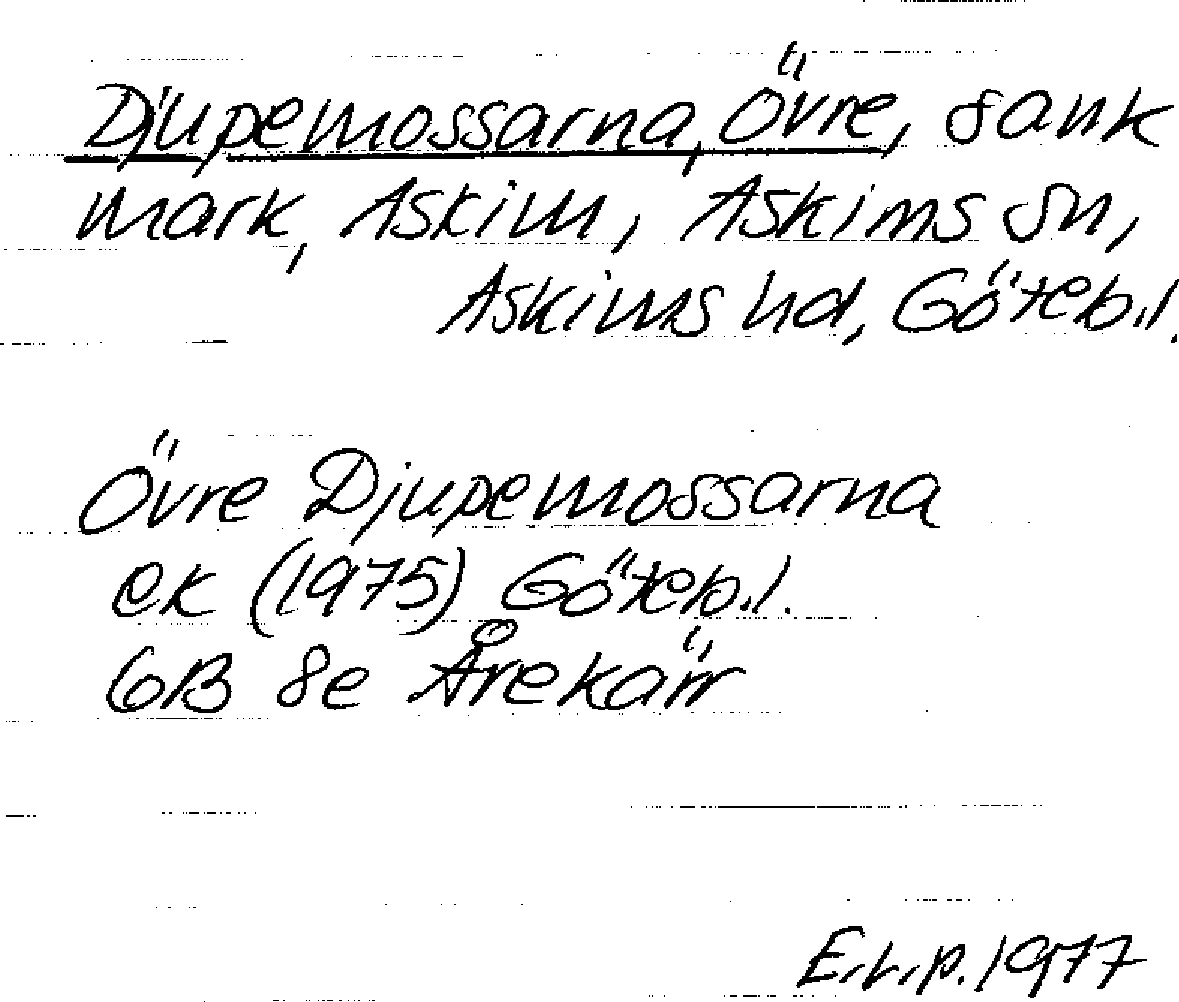 Djupemossarna, Övre, sank
mark, Askim, Askims sn,
Askims hd, Göteb.l.
Övre Djupemossarna
ek (1975) Göteb.l.
6B 8e Årekärr
E.L.p. 1977